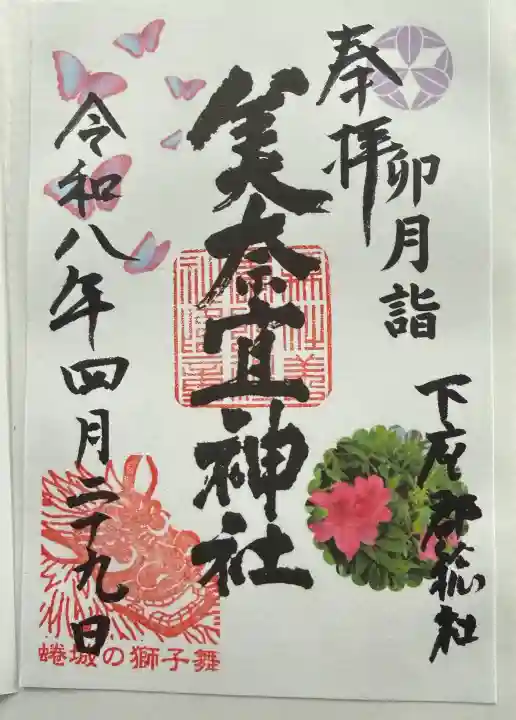 奉拝
卯月詣
下座郡總社
美奈宜神社
令和八年四月二十九日
蜷城の獅子舞